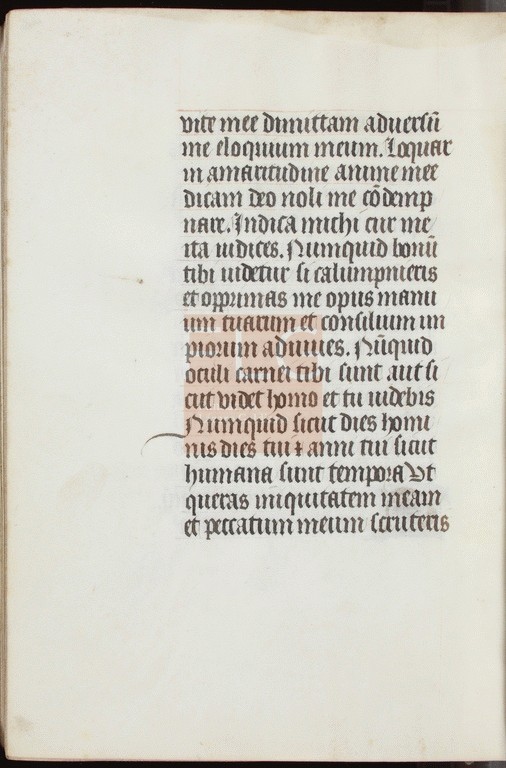 vite mee dimittam adversū
me eloquium meum. Loquar
in amaritudine anime mee
dicam deo noli me cōdemp
nare. Indica michi cur me
ita iudices. Numquid bonū
tibi uidetur si calumpnieris
et opprimas me opus manu
um tuarum et consilium im
piorum adiuues. Nūquid
oculi carnei tibi sunt aut si
cut videt homo et tu uidebis
Numquid sicut dies homi
nis dies tui ⁊ anni tui sicut
humana sunt tempora Vt
queras iniquitatem meam
et peccatum meum scruteris